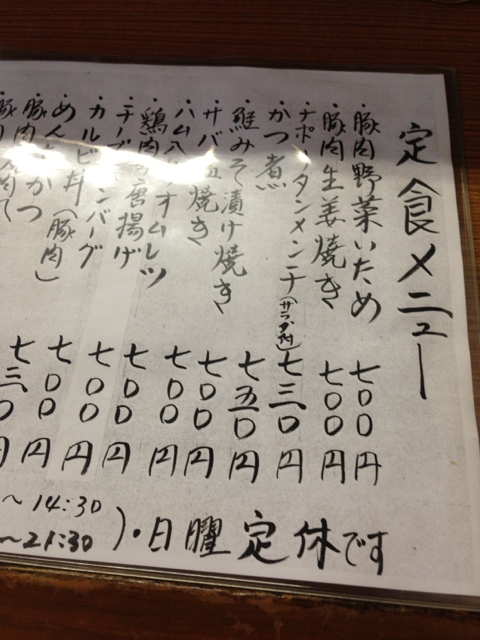 定食メニュー
・豚肉野菜いため 七〇〇円
・豚肉生姜焼き 七〇〇円
・ナポリタンメンチ(サラダ付) 七三〇円
・かつ煮 七五〇円
・鮭みそ漬け焼き 七〇〇円
・サバ塩焼き 七〇〇円
・ハム入りオムレツ 七〇〇円
・鶏肉の唐揚げ 七〇〇円
・チーズハンバーグ 七〇〇円
・カルビ丼(豚肉) 七三〇円
・めんちかつ
・豚肉
～14:30
～21:30)・日曜定休です